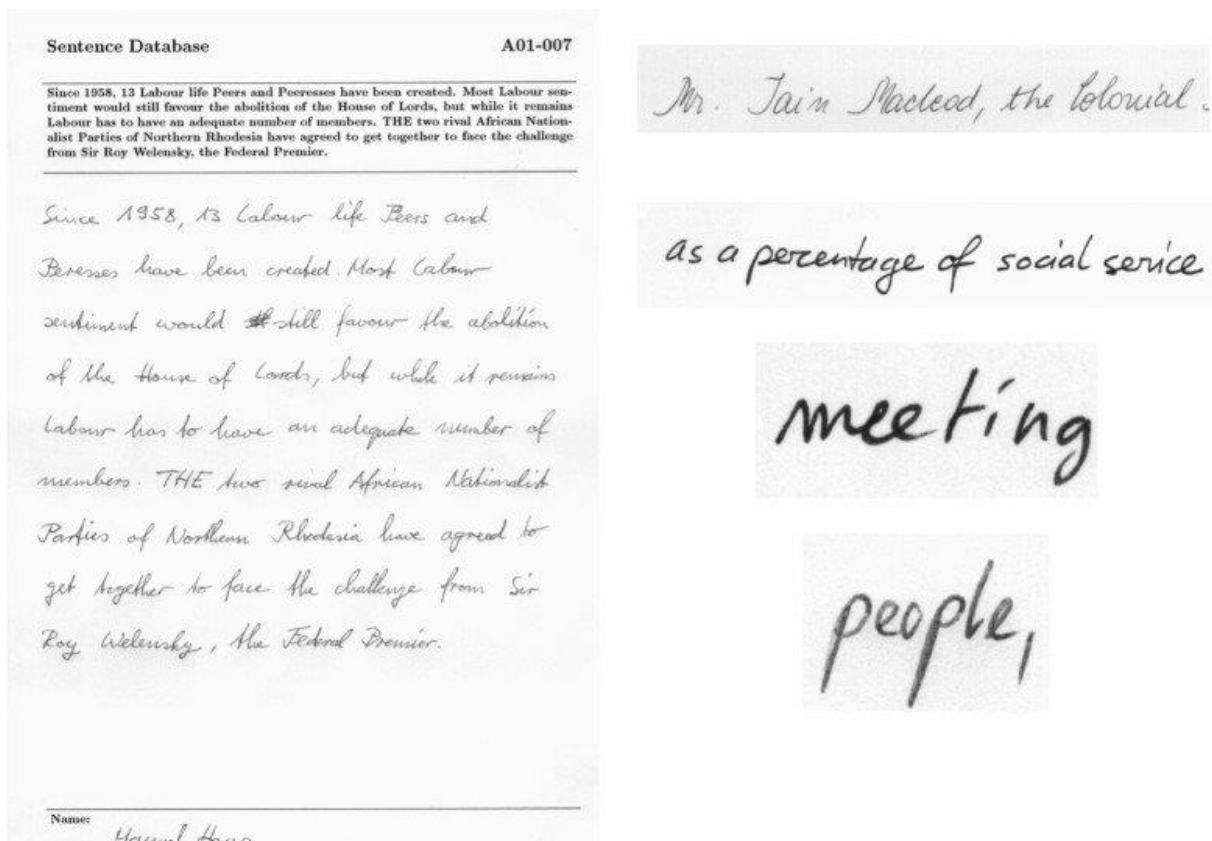 Sentence Database A01-007
Since 1958, 13 Labour life Peers and Peeresses have been created. Most Labour sen-
timent would still favour the abolition of the House of Lords, but while it remains
Labour has to have an adequate number of members. THE two rival African Nation-
alist Parties of Northern Rhodesia have agreed to get together to face the challenge
from Sir Roy Welensky, the Federal Premier.
Since 1958, 13 Labour life Peers and
Peresses have been created. Most Labour
sentiment would still favour the abolition
of the House of Lords, but while it remains
Labour has to have an adequate number of
members. THE two rival African Nationalist
Parties of Northern Rhodesia have agreed to
get together to face the challenge from Sir
Roy Welensky, the Federal Premier.
Name:
Mr. Iain Macleod, the Colonial
as a percentage of social serice
meeting
people,